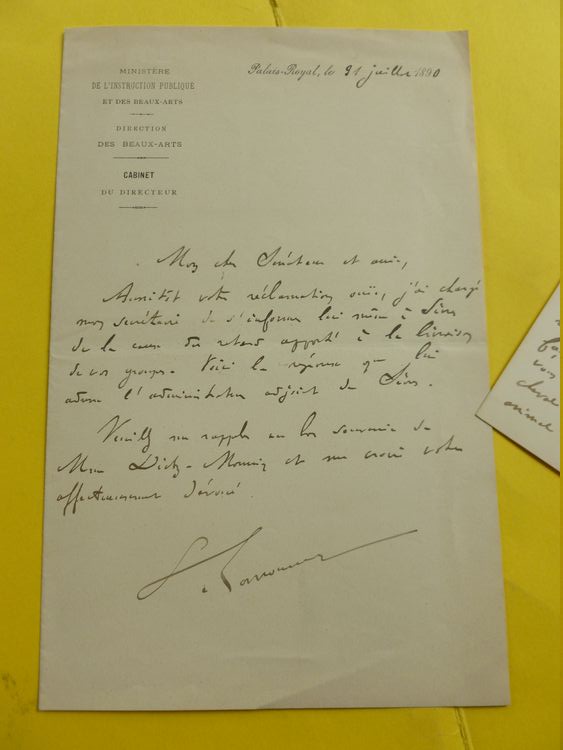 MINISTÈRE
DE L'INSTRUCTION PUBLIQUE
ET DES BEAUX-ARTS
DIRECTION
DES BEAUX-ARTS
CABINET
DU DIRECTEUR
Palais-Royal, le 31 juillet 1890
Mon cher Sénateur et ami,
Aussitôt votre réclamation ouïe, j'ai chargé
mon secrétaire de s'informer lui même à Sèvres
de la cause du retard apporté à la livraison
de vos groupes. Voici la réponse que lui
adresse l'administrateur adjoint de Sèvres.
Veuillez me rappeler au bon souvenir de
Mme Dietz-Monnin et me croire votre
affectueusement dévoué.
G. Larroumet
cheval
animal